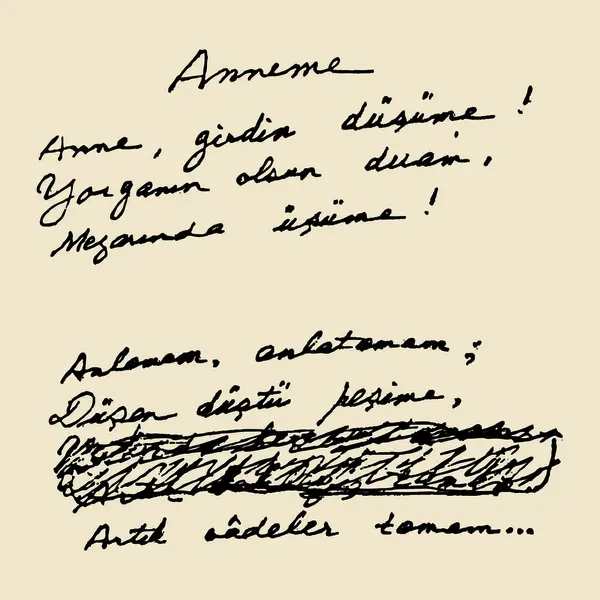 Anneme
Anne, girdin düşüme!
Yorganın olsun duam,
Mezarında üşüme!
Anlamam, anlatamam;
Düşen düştü peşime,
Artık vâdeler tamam...